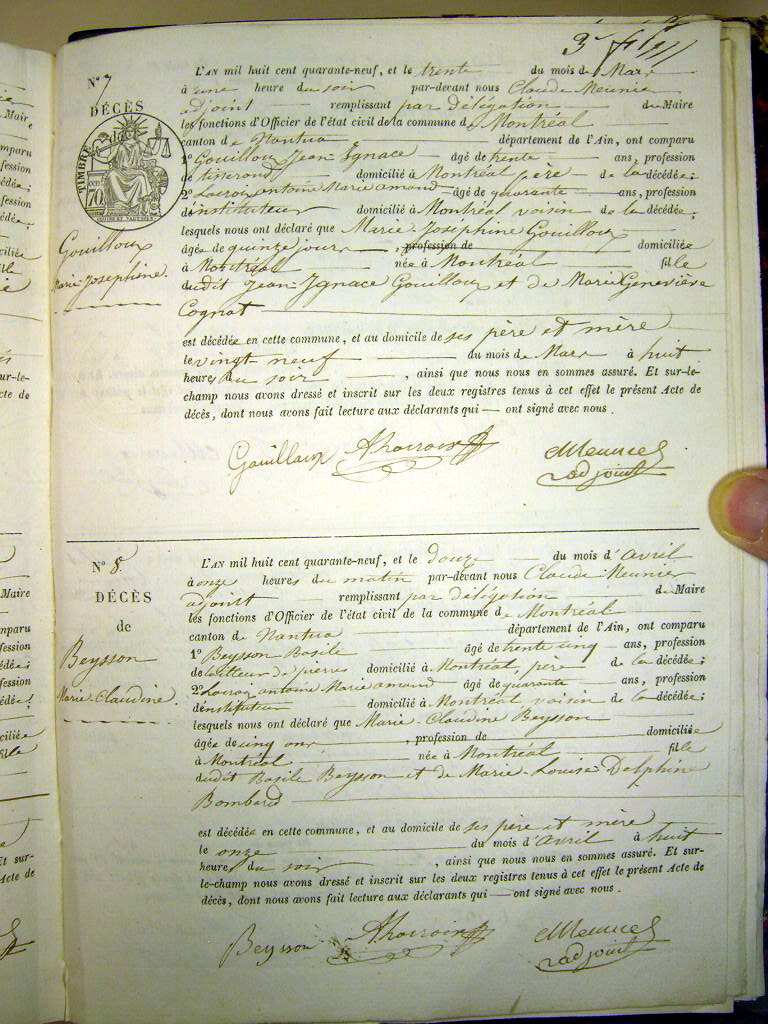 3e
N° 7
DÉCÈS
TIMBRE
70
Gouilloux
Marie Josephine
L'AN mil huit cent quarante-neuf, et le trente du mois de Mars
à une heure du soir par-devant nous Claude Meunier
adjoint remplissant par délégation de Maire
les fonctions d'Officier de l'état civil de la commune de Montréal
canton de Nantua département de l'Ain, ont comparu
1° Gouilloux Jean Ignace âgé de trente ans, profession
de tisserand domicilié à Montréal père de la décédée;
2° Lacroix antoine Marie amand âgé de quarante ans, profession
d'instituteur domicilié à Montréal voisin de la décédée;
lesquels nous ont déclaré que Marie Josephine Gouilloux
âgée de quinze jours, profession de domiciliée
à Montréal née à Montréal fille
dudit Jean Ignace Gouilloux et de Marie Geneviève
Cognat
est décédée en cette commune, et au domicile de ses père et mère
le vingt neuf du mois de Mars à huit
heures du soir, ainsi que nous nous en sommes assuré. Et sur-le-
champ nous avons dressé et inscrit sur les deux registres tenus à cet effet le présent Acte de
décès, dont nous avons fait lecture aux déclarants qui ont signé avec nous.
Gouilloux ALacroix CMeunier
adjoint
N° 8.
DÉCÈS
de
Beysson
Marie-Claudine.
L'AN mil huit cent quarante-neuf, et le douze du mois d'avril
à onze heures du matin par-devant nous Claude Meunier
adjoint remplissant par délégation de Maire
les fonctions d'Officier de l'état civil de la commune de Montréal
canton de Nantua département de l'Ain, ont comparu
1° Beysson Basile âgé de trente cinq ans, profession
de tailleur de pierres domicilié à Montréal, père de la décédée;
2° Lacroix antoine Marie amand âgé de quarante ans, profession
d'instituteur domicilié à Montréal voisin de la décédée;
lesquels nous ont déclaré que Marie-Claudine Beysson
âgée de cinq ans, profession de domiciliée
à Montréal née à Montréal fille
dudit Basile Beysson et de Marie-Louise Delphine
Bombard
est décédée en cette commune, et au domicile de ses père et mère
le onze du mois d'avril à huit
heures du soir, ainsi que nous nous en sommes assuré. Et sur-
le-champ nous avons dressé et inscrit sur les deux registres tenus à cet effet le présent Acte de
décès, dont nous avons fait lecture aux déclarants qui ont signé avec nous.
Beysson ALacroix CMeunier
adjoint